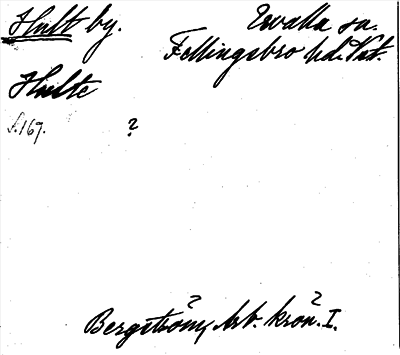 Hult by. Ervalla sn.
Fellingsbro hd. Vstm.
Hulte
s. 169. ?
? ?
Bergström, Arb. krön. I.